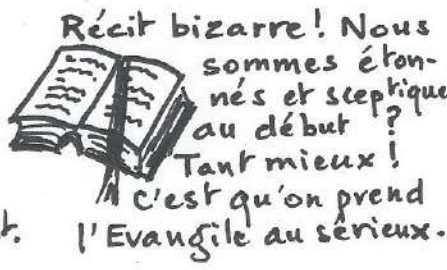 Récit bizarre! Nous
sommes éton-
nés et sceptique
au début ?
Tant mieux !
c'est qu'on prend
t. l'Evangile au sérieux.